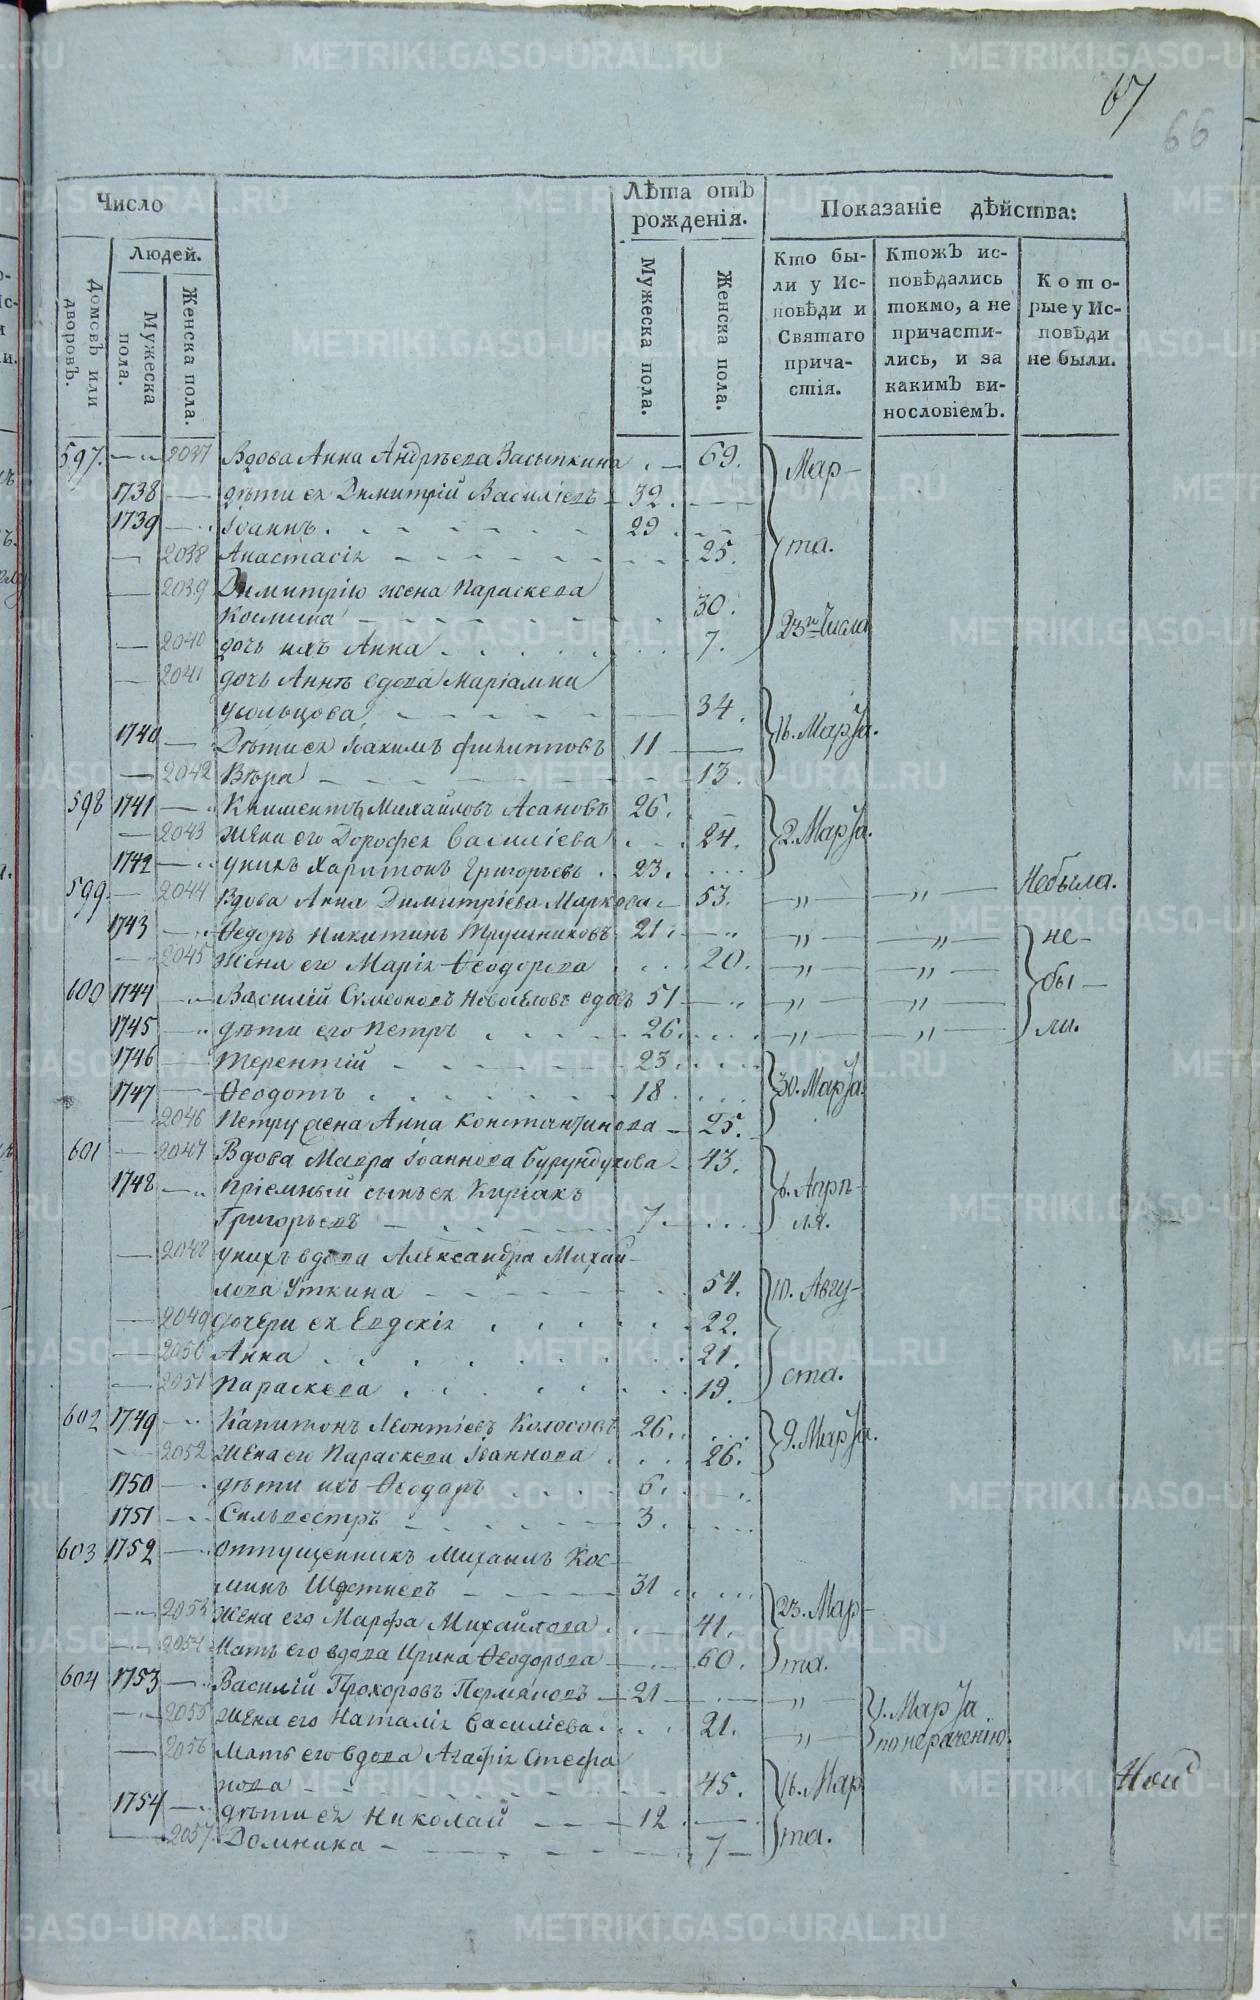 67
66
Число
Людей.
Домовъ или дворовъ.
Мужеска пола.
Женска пола.
Лѣта отъ рожденія.
Мужеска пола.
Женска пола.
Показаніе дѣйства:
Кто бы-
ли у Ис-
повѣди и
Святаго
прича-
стія.
Ктожъ ис-
повѣдались
токмо, а не
причасти-
лись, и за
какимъ ви-
нословіемъ.
Кото-
рые у Ис-
повѣди
не были.
597. 2037 Вдова Анна Андрѣева Засыпкина 69. Мар-
1738 дѣти ея Димитрій Василіевъ 32.
1739 Іоаннъ 29
2038 Анастасія 25. та.
2039 Димитрію жена Параскева
Космина 30. 23го Числа
2040 дочь ихъ Анна 7.
2041 дочь Аннѣ вдова Маріамна
Усольцова 34.
1740 Дѣти ея Іоакимъ Филипповъ 11 16. Марта.
2042 Вѣра 13.
598 1741 Климентъ Михайловъ Асановъ 26.
2043 Жена его Дорофея Василіева 24. 2. Марта.
1742 у нихъ Харитонъ Григорьевъ 23.
599. 2044 Вдова Анна Димитріева Маркова 53. Небыла.
1743 Ѳедоръ Никитинъ Трушниковъ 21. не-
2045 Жена его Марія Ѳеодорова 20.
600 1744 Василій Сумеоновъ Новоселовъ вдовъ 51 бы-
1745 дѣти его Петръ 26. ли.
1746 Терентій 23.
1747 Ѳеодотъ 18. 30. Марта.
2046 Петру жена Анна Константинова 25.
601 2047 Вдова Мавра Іоаннова Бурундукова 43.
1748 Пріемный сынъ ея Киріакъ 6. Апрѣ-
Григорьевъ 7. ля.
2048 у нихъ вдова Александра Михай-
лова Уткина 54. 10. Авгу-
2049 дочери ея Евдокія 22.
2050 Анна 21.
2051 Параскева 19. ста.
602 1749 Капитонъ Леонтіевъ Колосовъ 26. 9. Марта.
2052 Жена его Параскева Іоаннова 26.
1750 дѣти ихъ Ѳеодоръ 6.
1751 Сильвестръ 3.
603 1752 Отпущенникъ Михаилъ Кос-
минъ 31
2053 Жена его Марфа Михайлова 41. 23. Мар-
2054 Мать его вдова Ирина Ѳеодорова 60. та.
604 1753 Василій Прохоровъ Пермяковъ 21
2055 Жена его Наталія Василіева 21. 9. Марта
2056 Мать его вдова Агафія Стефа по нераченію.
нова 45. 16. Мар
1754 дѣти ея Николай 12
2057 Домника 7 та.